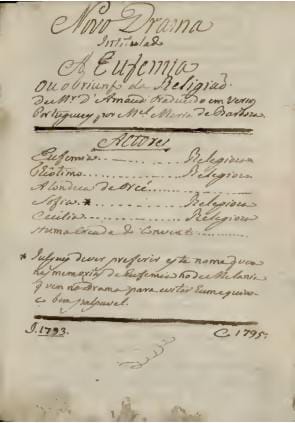 Novo Drama
Intitulado
A Eufemia
Ou o triunfo da Religiaõ
de Mr. d'Arnaud traduzido em verso
Portuguez, por Mel. Maria de Barbosa
Actores
Eufemia ........ Religiosa
Theotimo ........ Religioso
A Condeça de Orcé ........
Sofia * ........ Religiosa
Cecilia ........ Religiosa
Huma Creada do Convento ........
* Julguei dever preferir este nome q vem
nas memorias de Eufemia ao de Melania
q vem no Drama para evitar hum equivo-
co bem palpavel.
J. 1793. C. 1795.